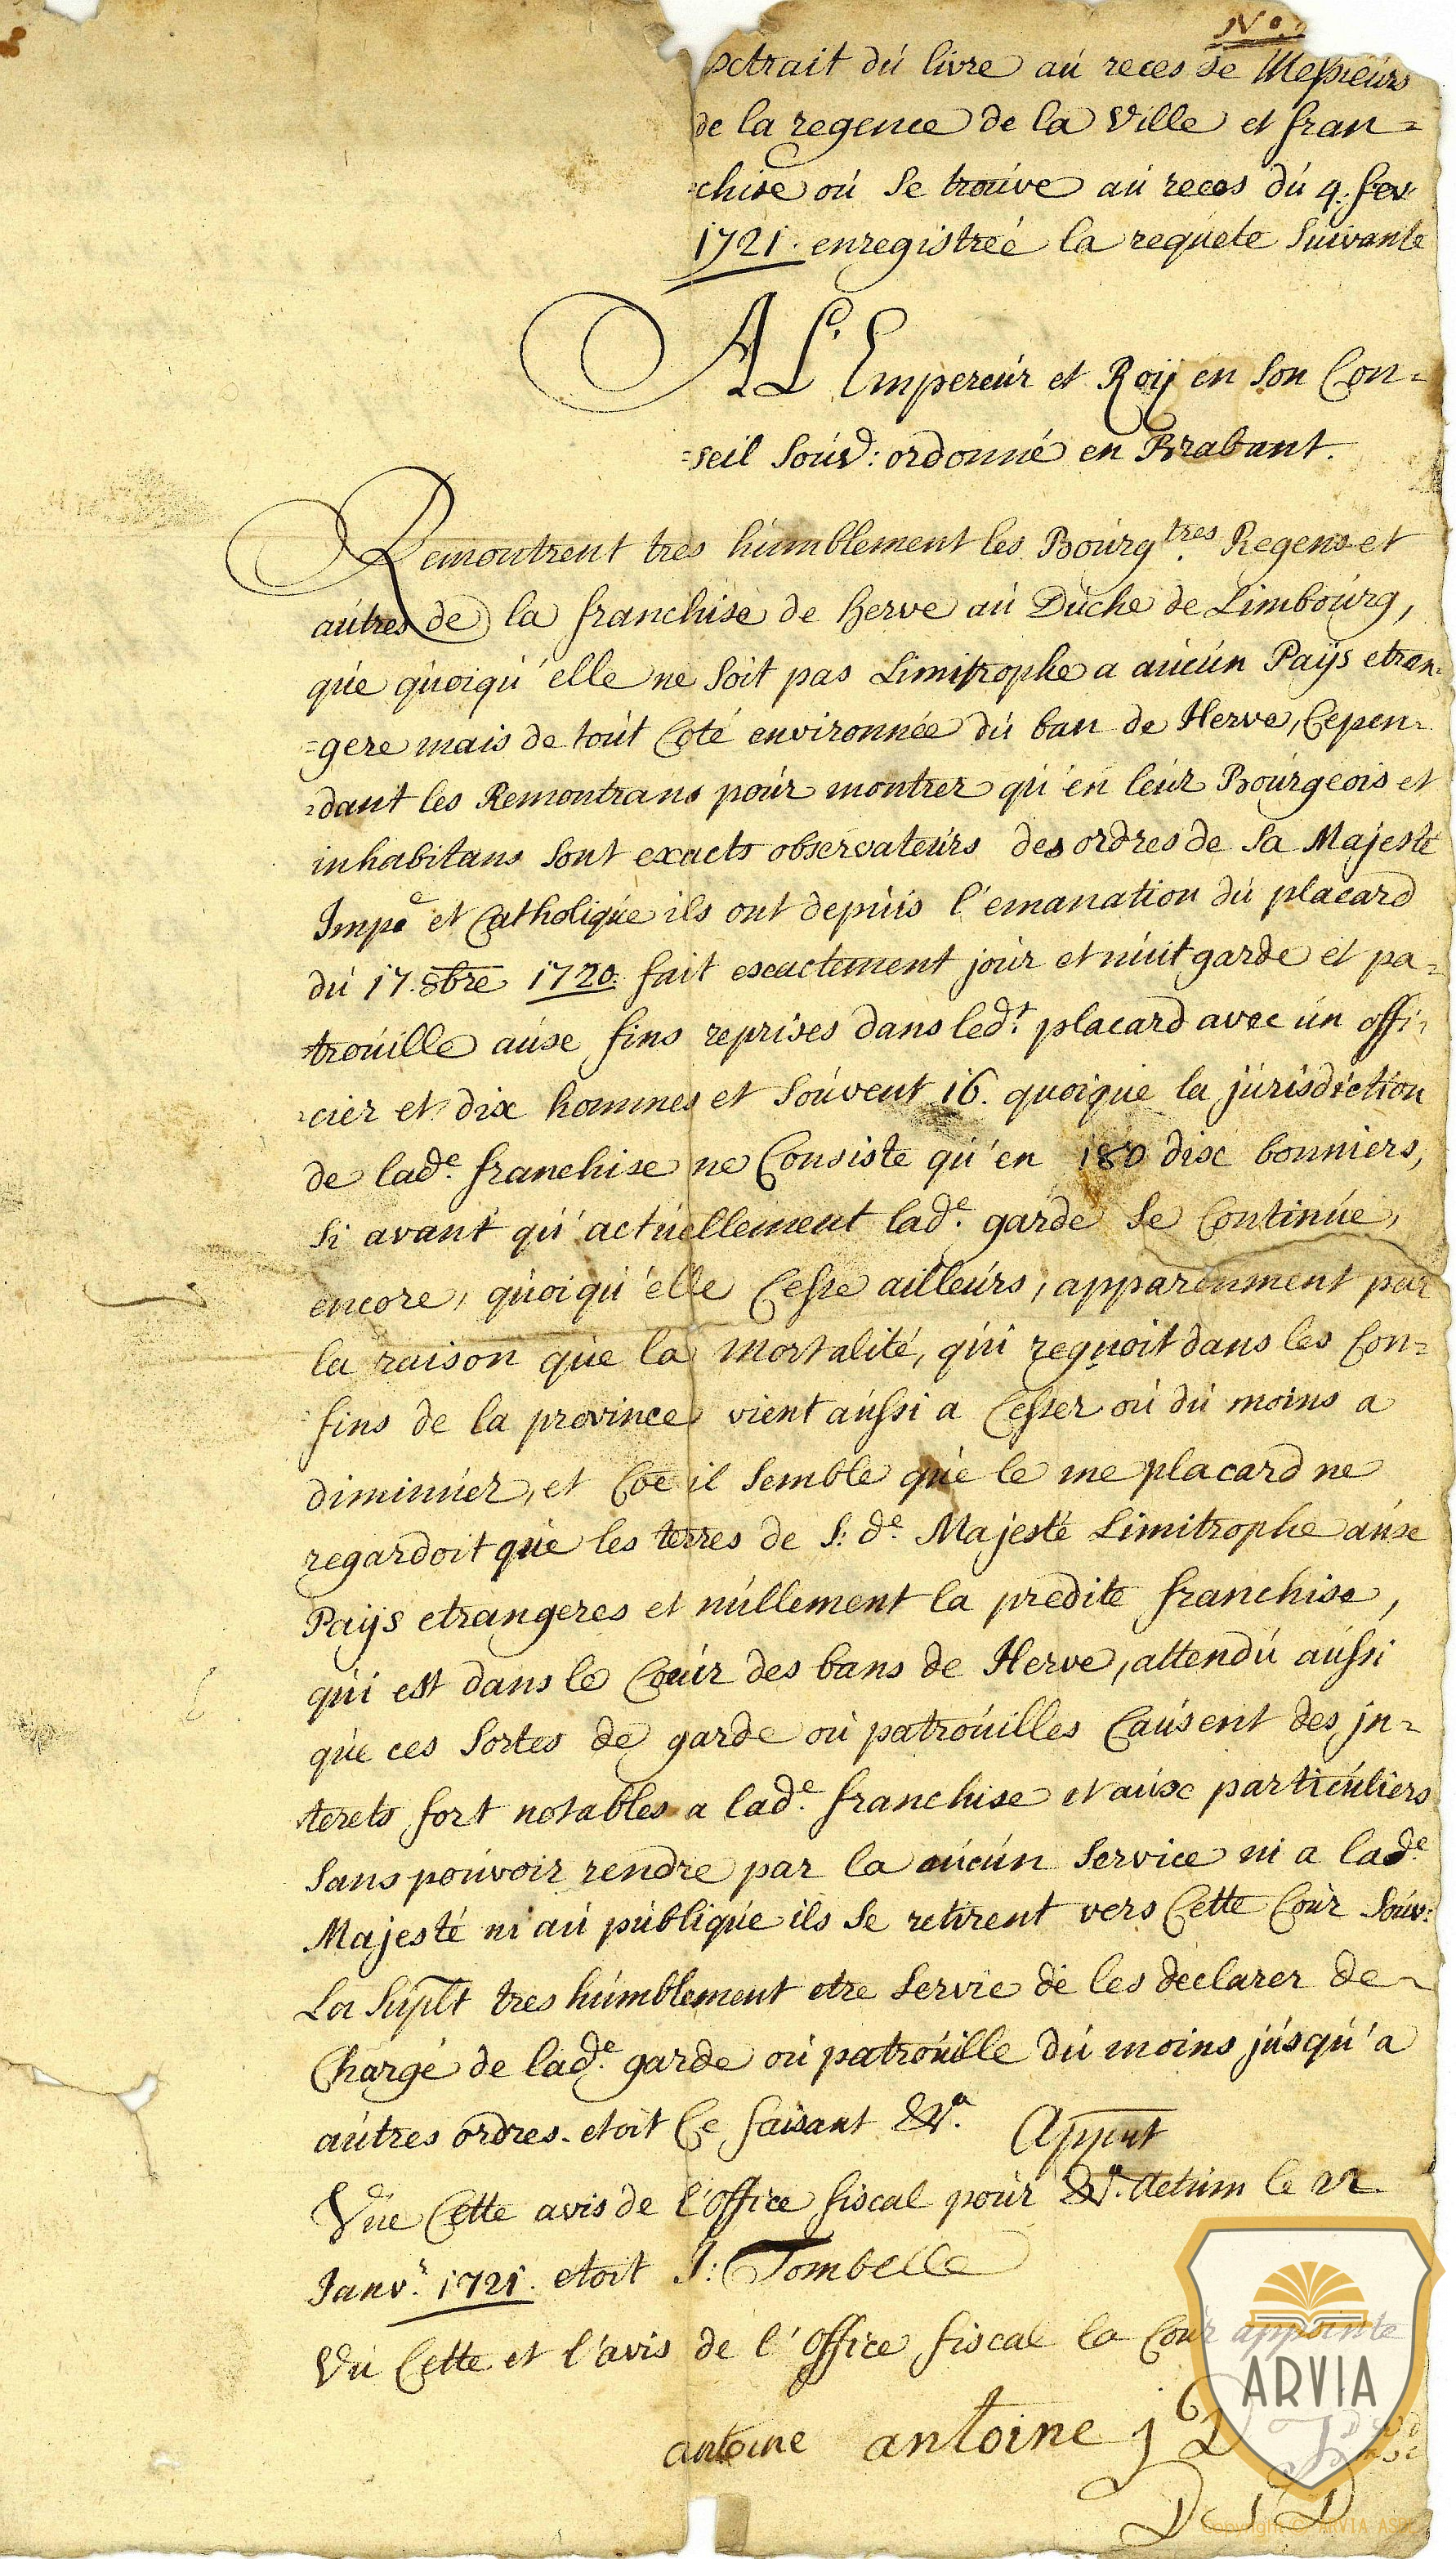 No.
xtrait du livre au reces de Messieurs
de la regence de la Ville et fran=
=chise ou se trouve au reces du 4. fev
1721. enregistreé la requete suivante
A L'Empereur et Roÿ en son Con=
=seil souv: ordonné en Brabant.
Remontrent tres humblement les Bourgtres Regens et
autres de la franchise de herve au Duche de Limbourg,
que quoiqu'elle ne soit pas Limitrophe a aucun Paÿs etran=
=gere mais de tout Coté environnée du ban de Herve, Cepen=
=dant les Remontrans pour montrer qu'en leur Bourgeois et
inhabitans sont exacts observateurs des ordres de sa Majesté
Impe et Catholique ils ont depuis l'emanation du placard
du 17. 8bre 1720. fait exactement jour et nuit garde et pa=
trouille aux fins reprises dans ledt. placard avec un offi=
=cier et dix hommes et souvent 16. quoique la jurisdiction
de lade. franchise ne Consiste qu'en 180 dix bonniers,
si avant qu'actuellement lade. garde se Continue,
encore, quoiqu'elle Cesse ailleurs, apparenment par
la raison que la mortalité, qui regnoit dans les Con=
=fins de la province vient aussi a Cesser ou du moins a
diminuer, et Coe il semble que le me placard ne
regardoit que les terres de S: de. Majesté Limitrophe aux
Paÿs etrangeres et nullement la predite franchise,
qui est dans le Coeur des bans de Herve, attendu aussi
que ces sortes de garde ou patrouilles Causent des in=
terets fort notables a lade. franchise et aux particuliers
sans pouvoir rendre par la aucun service ni a lade.
Majesté ni au publique ils se retirent vers Cette Cour Souv:
La suplt tres humblement etre servie de les declarer de=
Chargé de lade. garde ou patrouille du moins jusqu'a
autres ordres. etoit Ce faisant &a. Appnt
Vue Cette avis de l'office fiscal pour &a. Actum le 22
Janvr. 1721. etoit J: Tombelle
Vu Cette et l'avis de l'office fiscal la Cour appointe
antoine antoine j D
D J D
ARVIA
Copyright © ARVIA ASBL